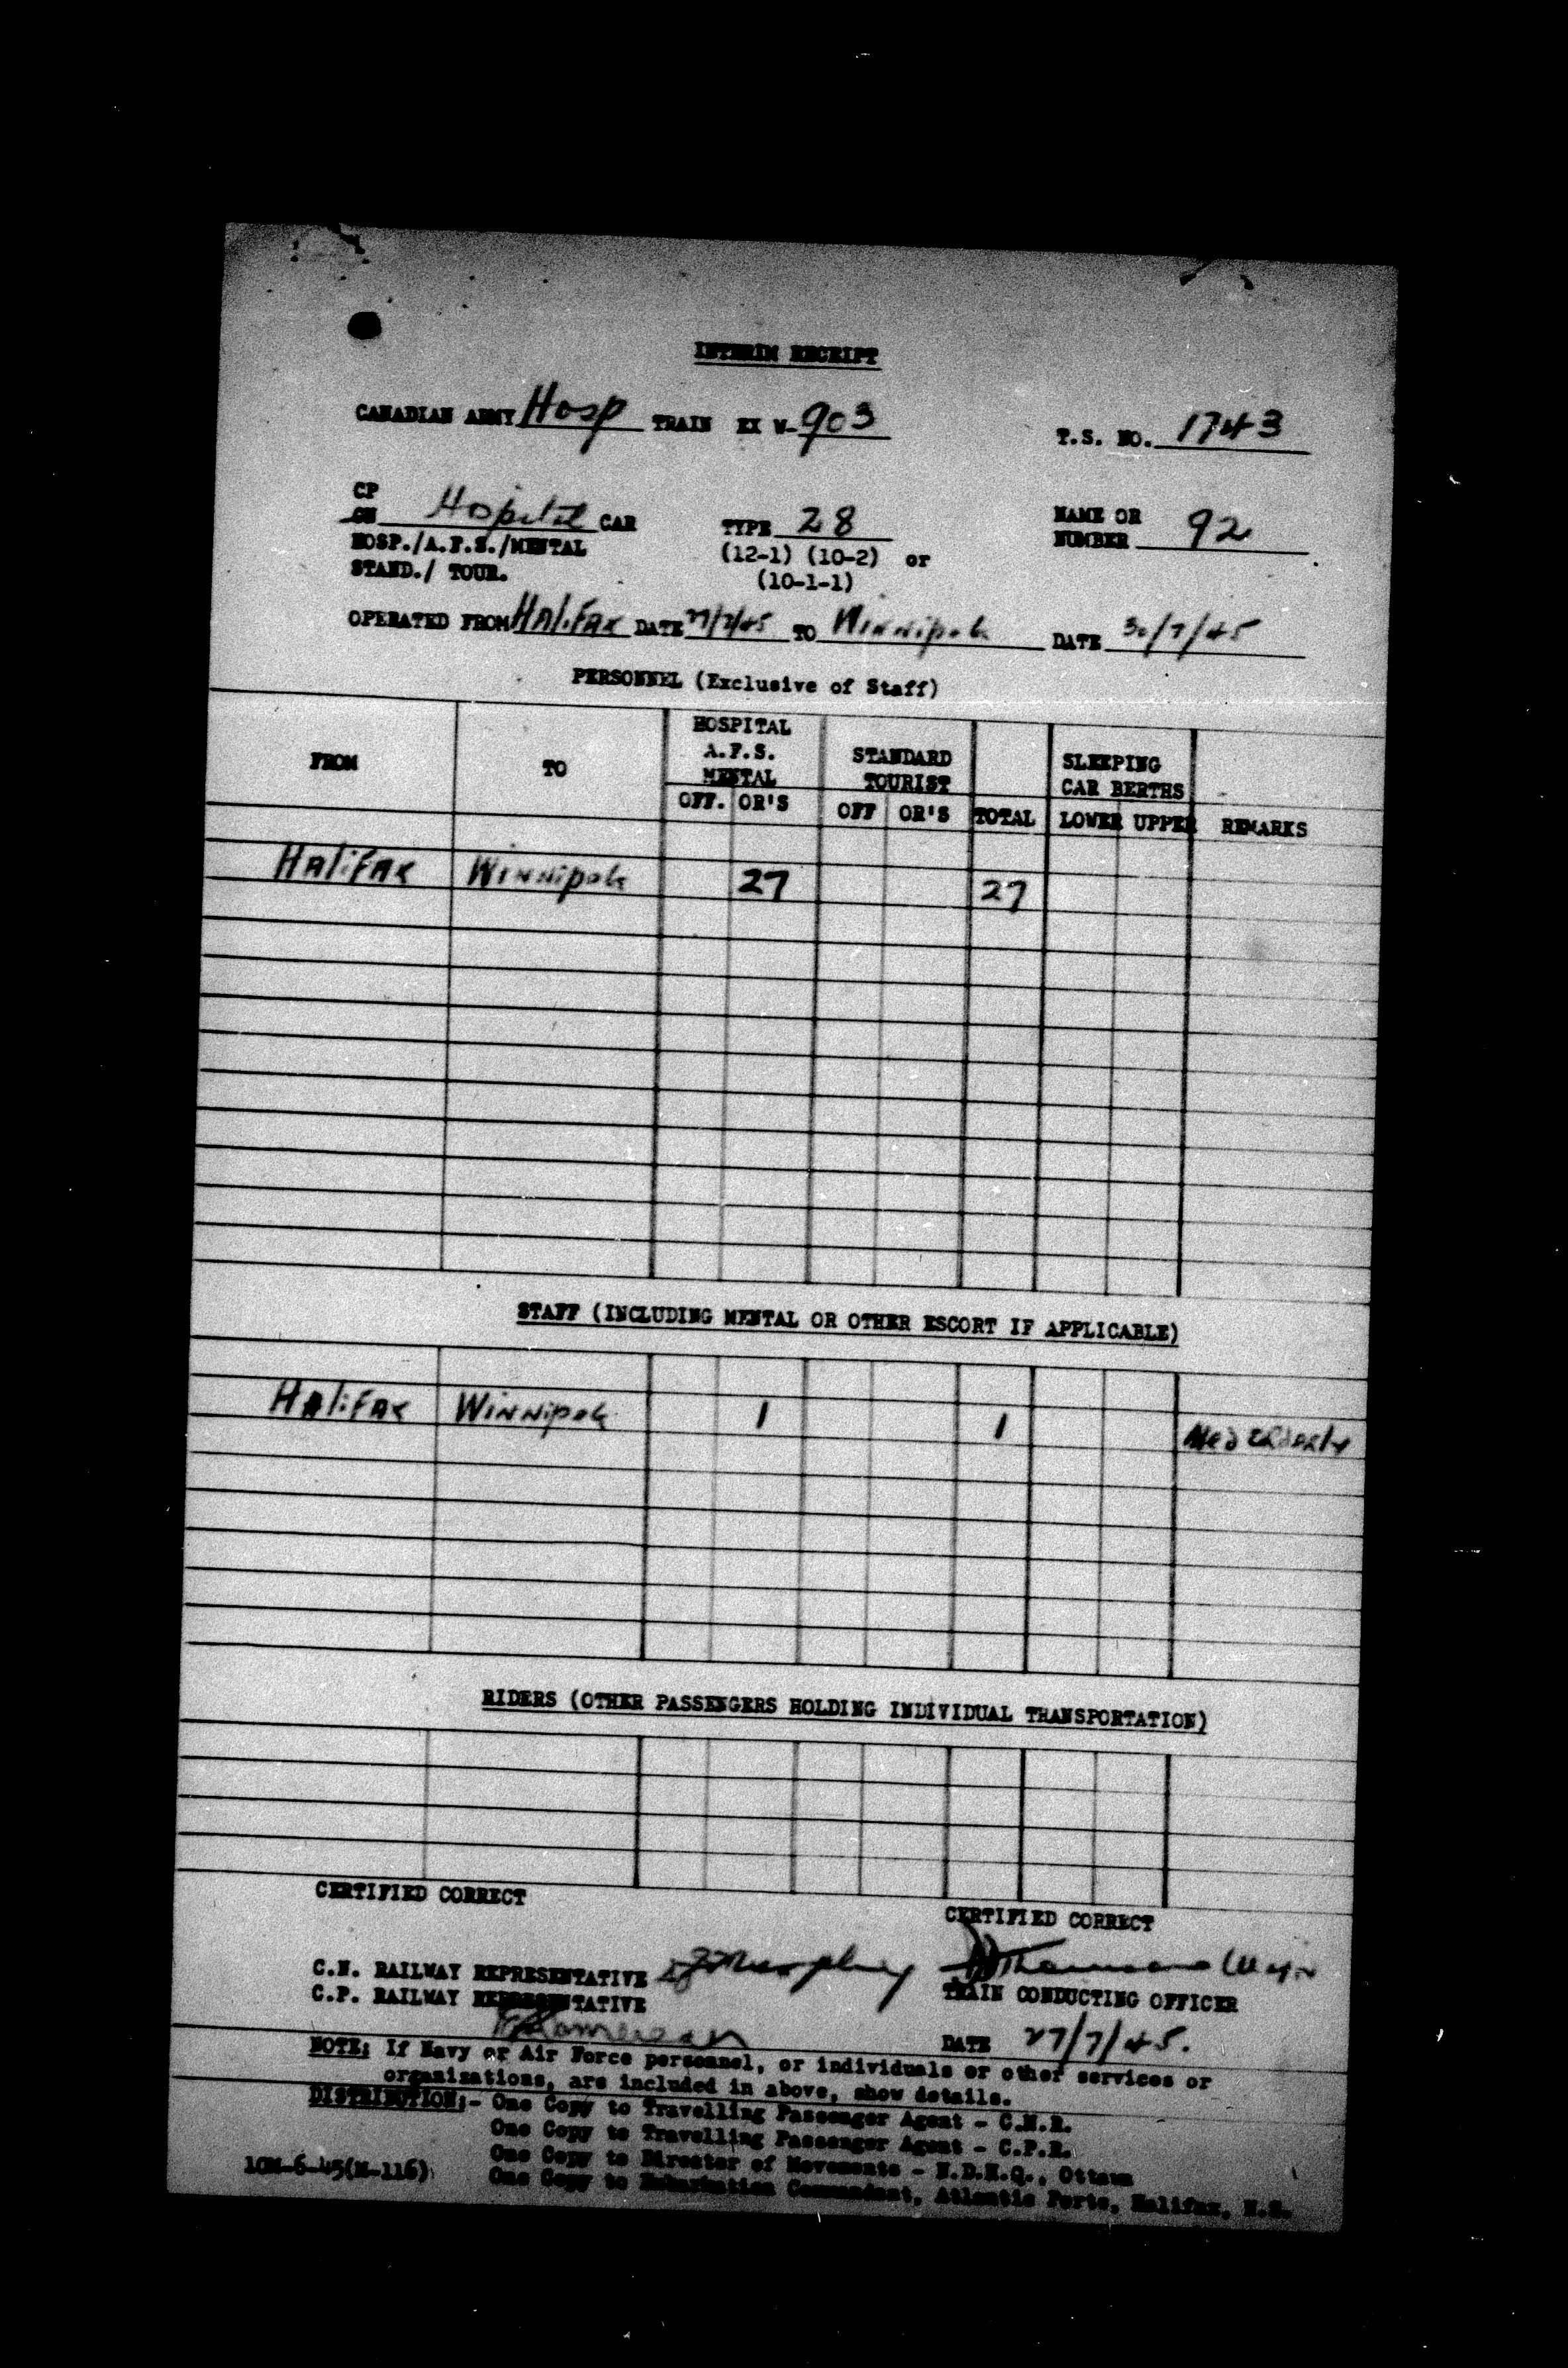 INTERIM RECEIPT
CANADIAN ARMY Hosp TRAIN EX W-903 T.S. NO. 1743
CP
CN Hospital CAR TYPE 28 NAME OR NUMBER 92
HOSP./A.F.S./MENTAL (12-1) (10-2) or
STAND./ TOUR. (10-1-1)
OPERATED FROM Halifax DATE 27/7/45 TO Winnipeg DATE 30/7/45
PERSONNEL (Exclusive of Staff)
FROM TO HOSPITAL A.F.S. MENTAL STANDARD TOURIST SLEEPING CAR BERTHS
OFF. OR'S OFF OR'S TOTAL LOWER UPPER REMARKS
Halifax Winnipeg 27 27
STAFF (INCLUDING MENTAL OR OTHER ESCORT IF APPLICABLE)
Halifax Winnipeg 1 1 Med Orderly
RIDERS (OTHER PASSENGERS HOLDING INDIVIDUAL TRANSPORTATION)
CERTIFIED CORRECT CERTIFIED CORRECT
C.N. RAILWAY REPRESENTATIVE Murphy Major
C.P. RAILWAY REPRESENTATIVE TRAIN CONDUCTING OFFICER
DATE 27/7/45.
NOTE: If Navy or Air Force personnel, or individuals or other services or
organizations, are included in above, show details.
DISTRIBUTION:- One Copy to Travelling Passenger Agent - C.N.R.
One Copy to Travelling Passenger Agent - C.P.R.
One Copy to Director of Movements - N.D.H.Q., Ottawa
One Copy to Embarkation Commandant, Atlantic Ports, Halifax, N.S.
10M-6-45(M-116)